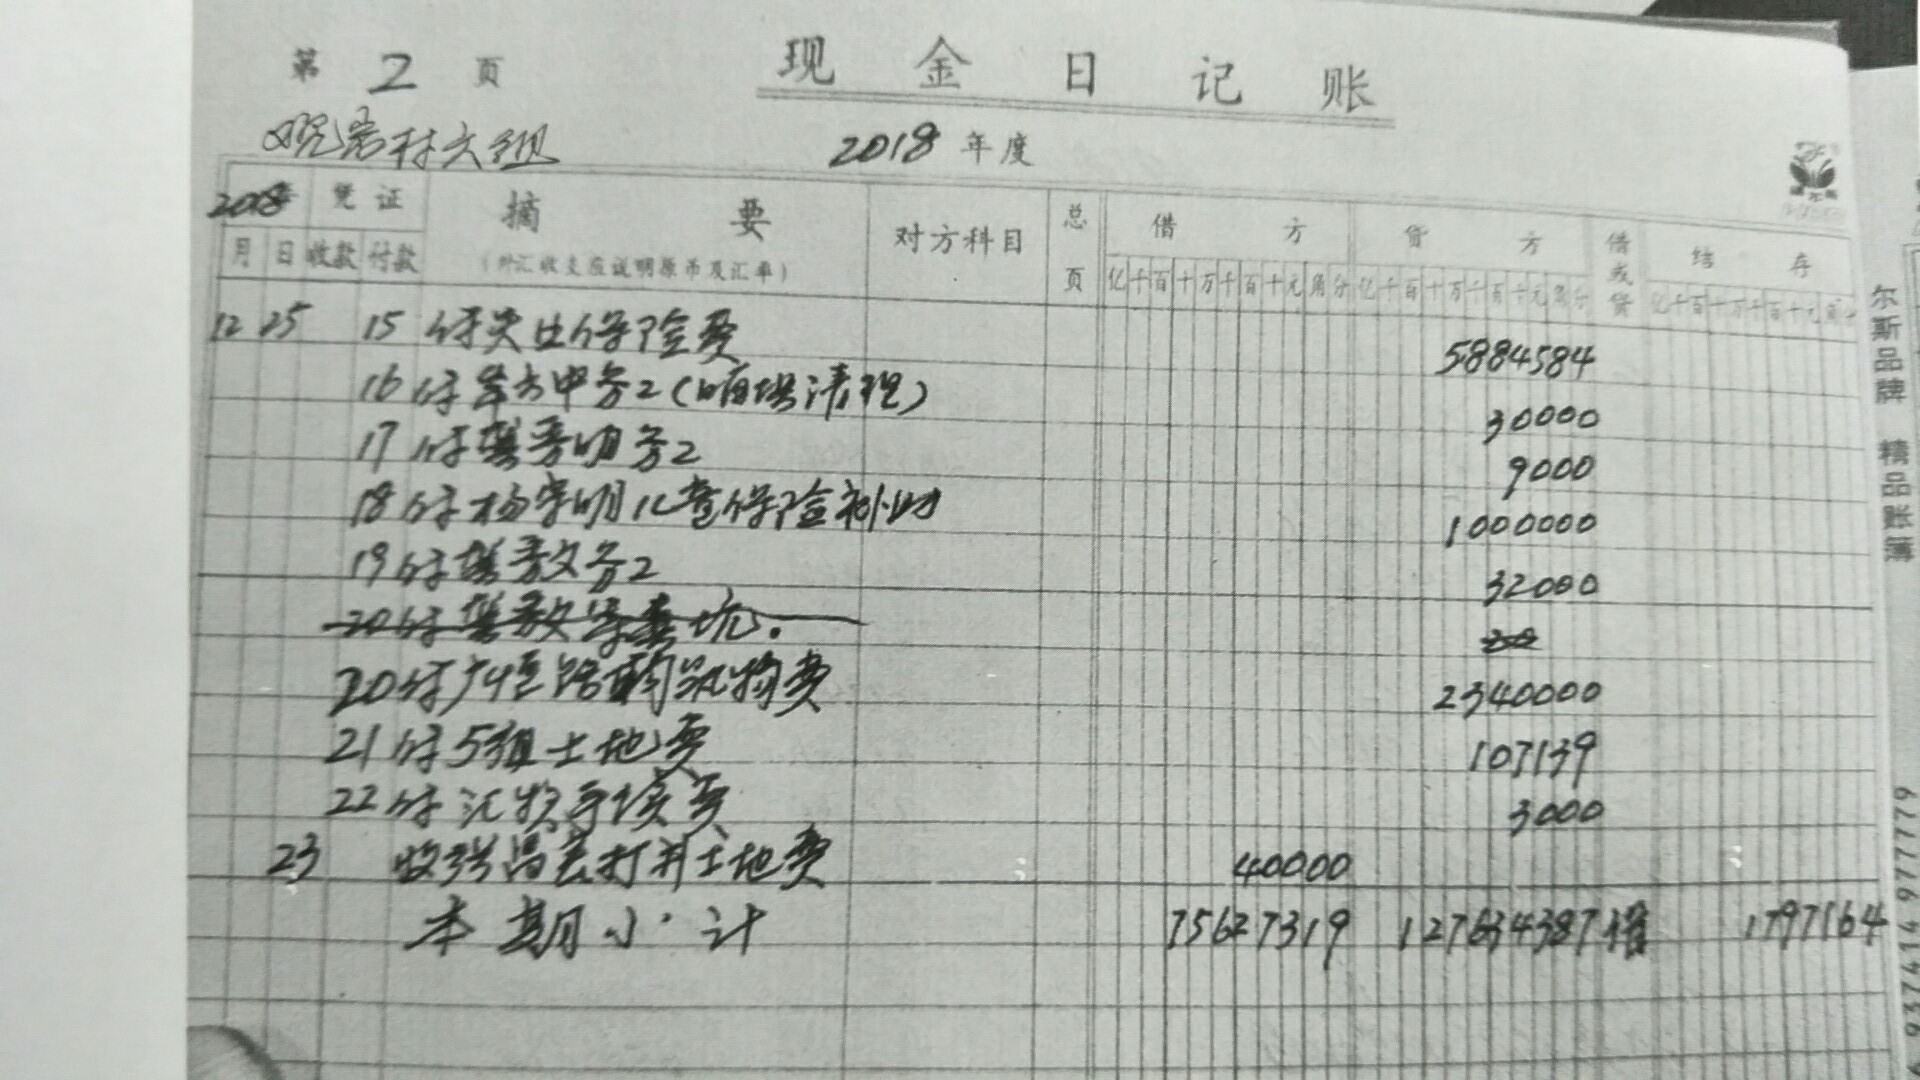 第 2 页
现金日记账
岩村六组
2018 年度
2018 凭证 摘要 对方科目 总页 借方 贷方 借或贷 结存
月 日 收款 付款 (外汇收支应说明原币及汇率) 亿千百十万千百十元角分 亿千百十万千百十元角分 亿千百十万千百十元角分
12 25 15 付失土保险费 5884584
16 付 中务工( 清理) 30000
17 付 明务工 9000
18 付杨 明儿童保险补助 1000000
19 付 务工 32000
20 付 坑.
20 付 路 费 2340000
21 付5组土地费 107139
22 付汇款手续费 3000
23 收张昌 打井土地费 40000
本期小计 75627319 127634387 借 1797164
尔斯品牌 精品账簿